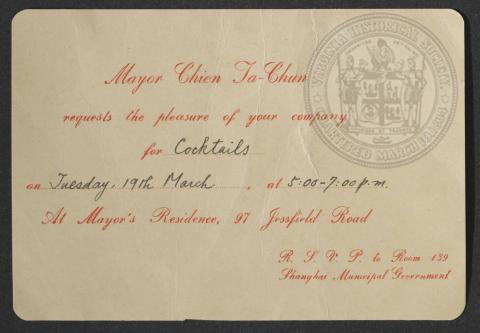 Mayor Chien Ta-Chun
requests the pleasure of your company
for Cocktails
on Tuesday, 19th March, at 5:00-7:00 p.m.
At Mayor's Residence, 97 Jessfield Road
R. S. V. P. to Room 139
Shanghai Municipal Government
VIRGINIA HISTORICAL SOCIETY.
CHARTERED MARCH